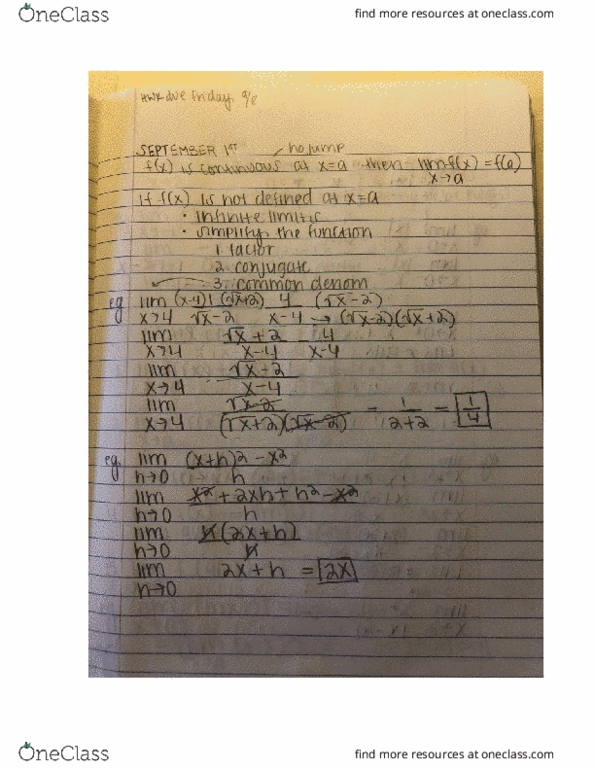 OneClass
find more resources at oneclass.com
HWK due friday, 9/8
SEPTEMBER 1ST no jump
f(x) is continuous at x=a then lim f(x) = f(a)
x→a
If f(x) is not defined at x=a
· infinite limits
· simplify the function
1 factor
2 conjugate
3 common denom
eg lim (x-4)1 (√x+2) 4 (√x-2)
x→4 √x-2 x-4 → (√x-2)(√x+2)
lim √x+2 4
x→4 x-4 x-4
lim √x-2
x→4 x-4
lim √x-2 = 1 = 1
x→4 (√x+2)(√x-2) 2+2 4
eg. lim (x+h)2-x2
h→0 h
lim x2+2xh+h2-x2
h→0 h
lim h(2x+h)
h→0 h
lim 2x+h = 2x
h→0
OneClass
find more resources at oneclass.com